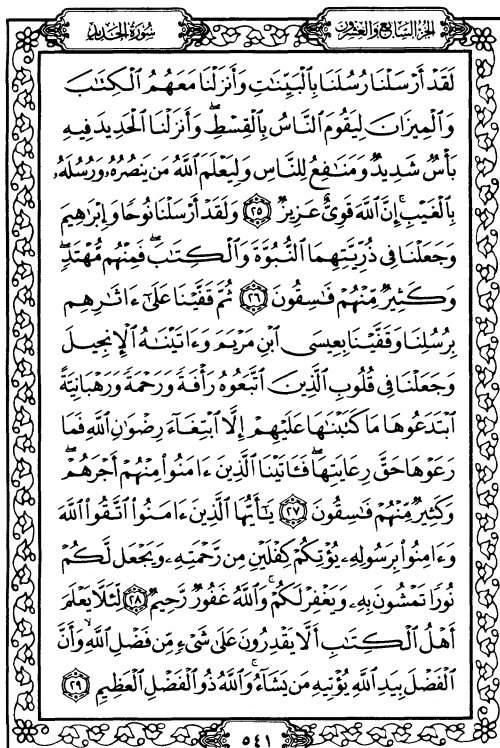 سُورَةُ الحَدِيدِ
الجُزْءُ السَّابِعُ وَالعِشْرُونَ
لَقَدْ أَرْسَلْنَا رُسُلَنَا بِالْبَيِّنَاتِ وَأَنزَلْنَا مَعَهُمُ الْكِتَابَ
وَالْمِيزَانَ لِيَقُومَ النَّاسُ بِالْقِسْطِ ۖ وَأَنزَلْنَا الْحَدِيدَ فِيهِ
بَأْسٌ شَدِيدٌ وَمَنَافِعُ لِلنَّاسِ وَلِيَعْلَمَ اللَّهُ مَن يَنصُرُهُ وَرُسُلَهُ
بِالْغَيْبِ ۚ إِنَّ اللَّهَ قَوِيٌّ عَزِيزٌ ٢٥ وَلَقَدْ أَرْسَلْنَا نُوحًا وَإِبْرَاهِيمَ
وَجَعَلْنَا فِي ذُرِّيَّتِهِمَا النُّبُوَّةَ وَالْكِتَابَ ۖ فَمِنْهُم مُّهْتَدٍ ۖ
وَكَثِيرٌ مِّنْهُمْ فَاسِقُونَ ٢٦ ثُمَّ قَفَّيْنَا عَلَىٰ ءَاثَارِهِم
بِرُسُلِنَا وَقَفَّيْنَا بِعِيسَى ابْنِ مَرْيَمَ وَءَاتَيْنَاهُ الْإِنجِيلَ
وَجَعَلْنَا فِي قُلُوبِ الَّذِينَ اتَّبَعُوهُ رَأْفَةً وَرَحْمَةً وَرَهْبَانِيَّةً
ابْتَدَعُوهَا مَا كَتَبْنَاهَا عَلَيْهِمْ إِلَّا ابْتِغَاءَ رِضْوَانِ اللَّهِ فَمَا
رَعَوْهَا حَقَّ رِعَايَتِهَا ۖ فَـَٔاتَيْنَا الَّذِينَ ءَامَنُوا مِنْهُمْ أَجْرَهُمْ ۖ
وَكَثِيرٌ مِّنْهُمْ فَاسِقُونَ ٢٧ يَا أَيُّهَا الَّذِينَ ءَامَنُوا اتَّقُوا اللَّهَ
وَءَامِنُوا بِرَسُولِهِ يُؤْتِكُمْ كِفْلَيْنِ مِن رَّحْمَتِهِ وَيَجْعَل لَّكُمْ
نُورًا تَمْشُونَ بِهِ وَيَغْفِرْ لَكُمْ ۚ وَاللَّهُ غَفُورٌ رَّحِيمٌ ٢٨ لِّئَلَّا يَعْلَمَ
أَهْلُ الْكِتَابِ أَلَّا يَقْدِرُونَ عَلَىٰ شَيْءٍ مِّن فَضْلِ اللَّهِ ۙ وَأَنَّ
الْفَضْلَ بِيَدِ اللَّهِ يُؤْتِيهِ مَن يَشَاءُ ۚ وَاللَّهُ ذُو الْفَضْلِ الْعَظِيمِ ٢٩
٥٤١